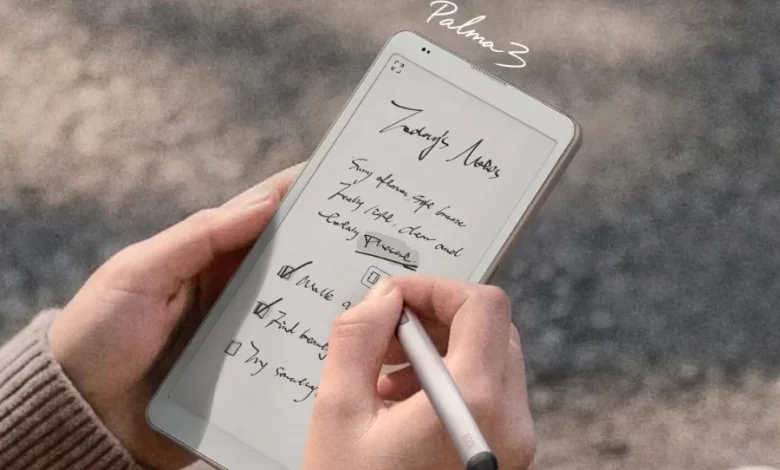 Palma 3
Today's Notes
Sunny afternoon, soft breeze
Feeling light, clear and
today
Walk a
Find beauty
Try something